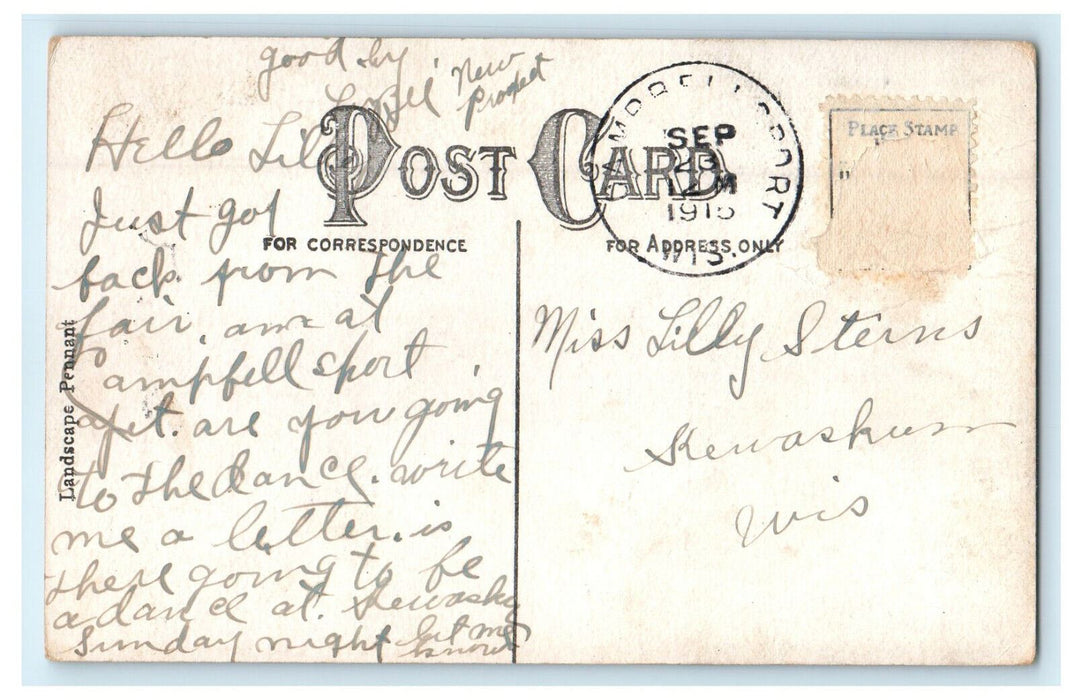 good by
New
Prospect
Hello Lilly
POST CARD
Just got
FOR CORRESPONDENCE
back from the
fair, am at
Campbellsport
yet. are you going
to the dance. write
me a letter. is
there going to be
a dance at Kewasku
Sunday night let me
know
Landscape Pennant
CAMPBELLSPORT
SEP
12 M
WIS.
FOR ADDRESS ONLY
PLACE STAMP
Miss Lilly Sterns
Kewaskum
Wis